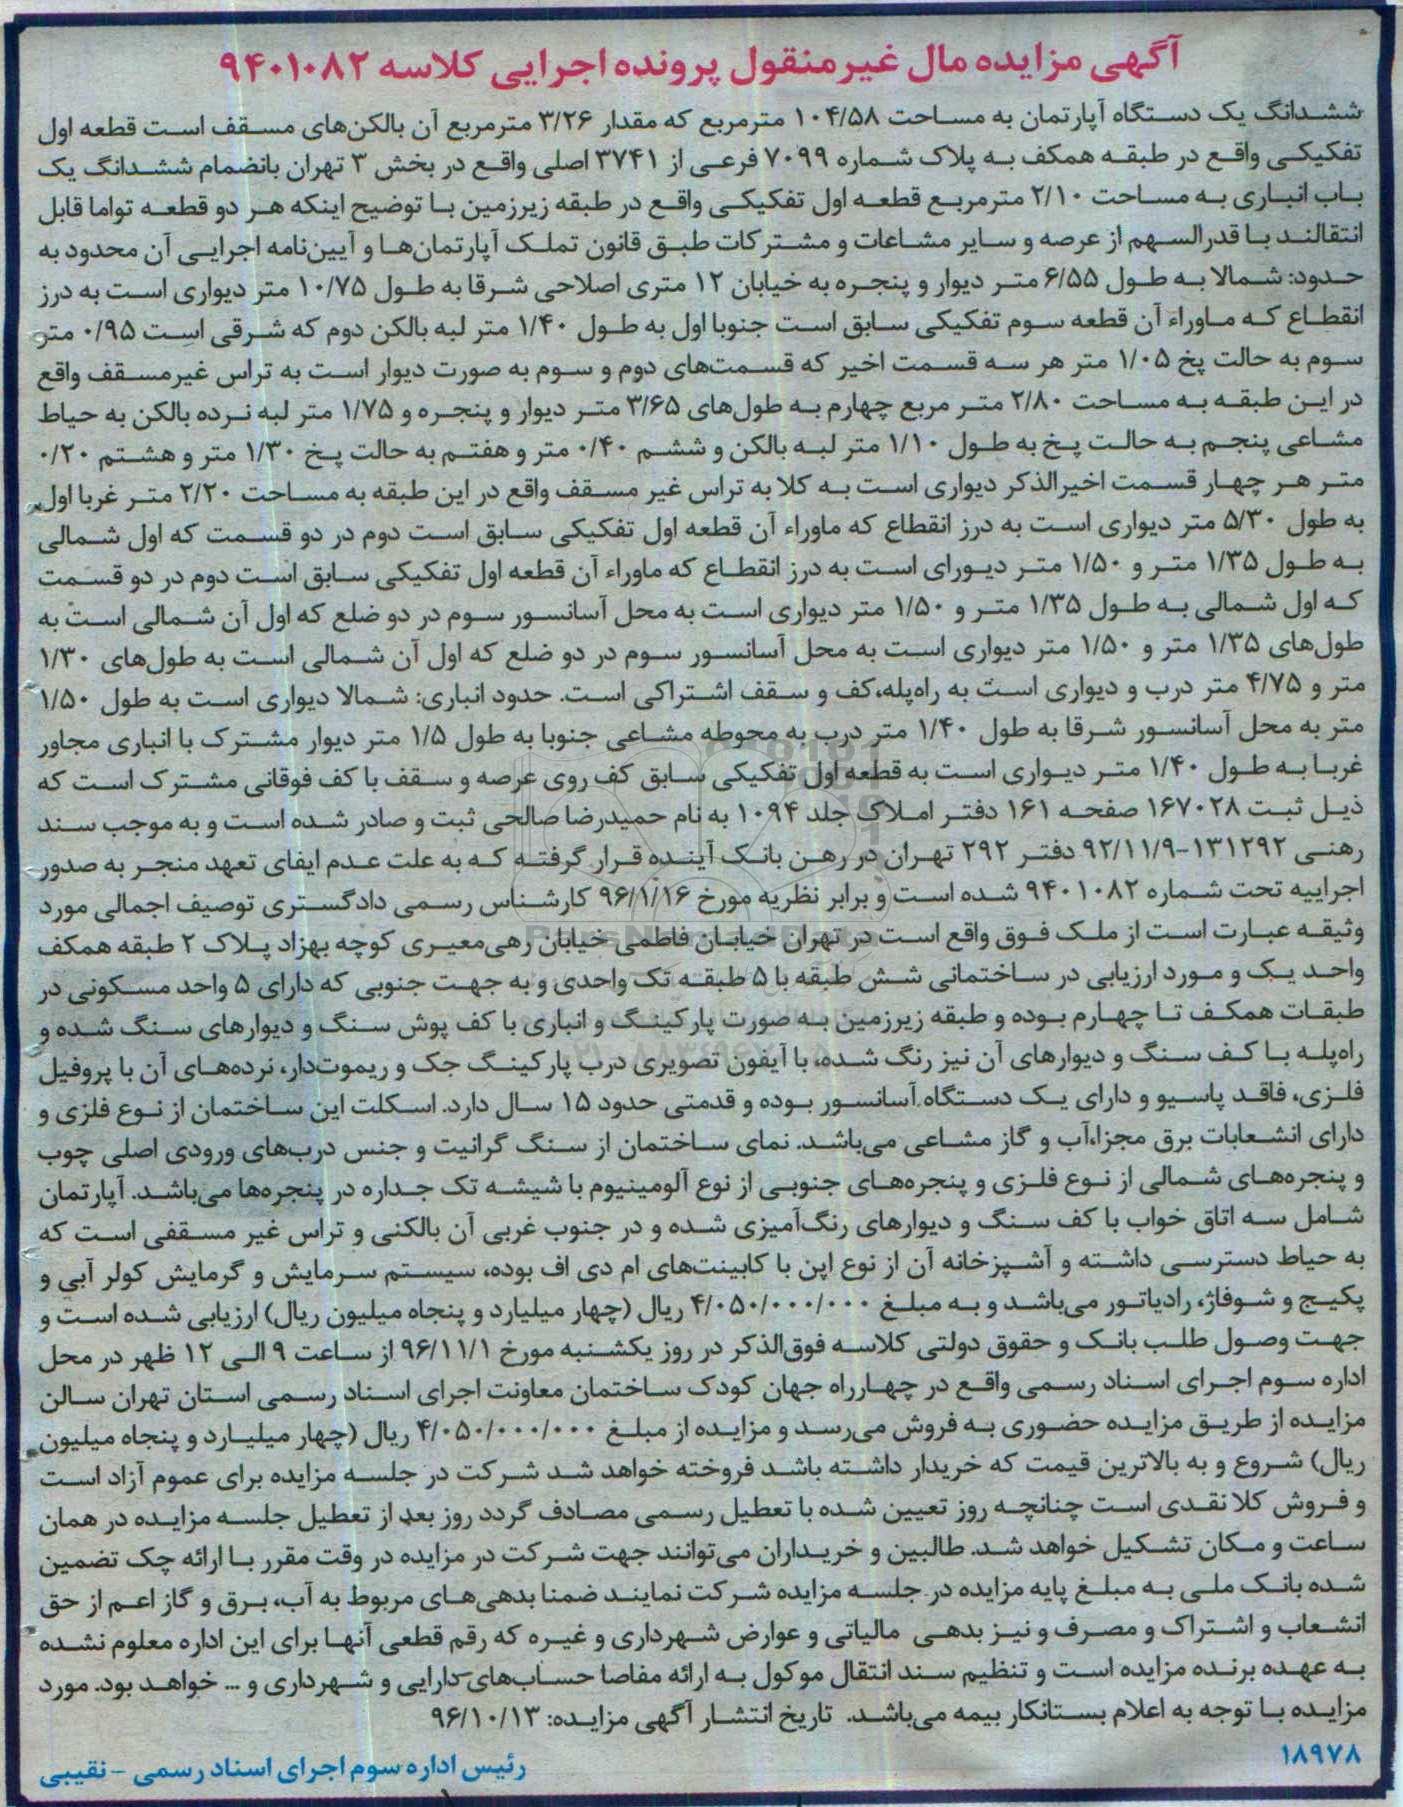 آگهی مزایده مال غیرمنقول پرونده اجرایی کلاسه ۹۴۰۱۰۸۲
ششدانگ یک دستگاه آپارتمان به مساحت ۱۰۴/۵۸ مترمربع که مقدار ۳/۲۶ مترمربع آن بالکن‌های مسقف است قطعه اول
تفکیکی واقع در طبقه همکف به پلاک شماره ۷۰۹۹ فرعی از ۳۷۴۱ اصلی واقع در بخش ۳ تهران بانضمام ششدانگ یک
باب انباری به مساحت ۲/۱۰ مترمربع قطعه اول تفکیکی واقع در طبقه زیرزمین با توضیح اینکه هر دو قطعه تواما قابل
انتقالند با قدرالسهم از عرصه و سایر مشاعات و مشترکات طبق قانون تملک آپارتمان‌ها و آیین‌نامه اجرایی آن محدود به
حدود: شمالا به طول ۶/۵۵ متر دیوار و پنجره به خیابان ۱۲ متری اصلاحی شرقا به طول ۱۰/۷۵ متر دیواری است به درز
انقطاع که ماوراء آن قطعه سوم تفکیکی سابق است جنوبا اول به طول ۱/۴۰ متر لبه بالکن دوم که شرقی است ۰/۹۵ متر
سوم به حالت پخ ۱/۰۵ متر هر سه قسمت اخیر که قسمت‌های دوم و سوم به صورت دیوار است به تراس غیرمسقف واقع
در این طبقه به مساحت ۲/۸۰ متر مربع چهارم به طول‌های ۳/۶۵ متر دیوار و پنجره و ۱/۷۵ متر لبه نرده بالکن به حیاط
مشاعی پنجم به حالت پخ به طول ۱/۱۰ متر لبه بالکن و ششم ۰/۴۰ متر و هفتم به حالت پخ ۱/۳۰ متر و هشتم ۰/۲۰
متر هر چهار قسمت اخیرالذکر دیواری است به کلا به تراس غیر مسقف واقع در این طبقه به مساحت ۲/۲۰ متر غربا اول
به طول ۵/۳۰ متر دیواری است به درز انقطاع که ماوراء آن قطعه اول تفکیکی سابق است دوم در دو قسمت که اول شمالی
به طول ۱/۳۵ متر و ۱/۵۰ متر دیورای است به درز انقطاع که ماوراء آن قطعه اول تفکیکی سابق است دوم در دو قسمت
که اول شمالی به طول ۱/۳۵ متر و ۱/۵۰ متر دیواری است به محل آسانسور سوم در دو ضلع که اول آن شمالی است به
طول‌های ۱/۳۵ متر و ۱/۵۰ متر دیواری است به محل آسانسور سوم در دو ضلع که اول آن شمالی است به طول‌های ۱/۳۰
متر و ۴/۷۵ متر درب و دیواری است به راه‌پله،کف و سقف اشتراکی است. حدود انباری: شمالا دیواری است به طول ۱/۵۰
متر به محل آسانسور شرقا به طول ۱/۴۰ متر درب به محوطه مشاعی جنوبا به طول ۱/۵ متر دیوار مشترک با انباری مجاور
غربا به طول ۱/۴۰ متر دیواری است به قطعه اول تفکیکی سابق کف روی عرصه و سقف با کف فوقانی مشترک است که
ذیل ثبت ۱۶۷۰۲۸ صفحه ۱۶۱ دفتر املاک جلد ۱۰۹۴ به نام حمیدرضا صالحی ثبت و صادر شده است و به موجب سند
رهنی ۱۳۱۲۹۲-۹۲/۱۱/۹ دفتر ۲۹۲ تهران در رهن بانک آینده قرار گرفته که به علت عدم ایفای تعهد منجر به صدور
اجراییه تحت شماره ۹۴۰۱۰۸۲ شده است و برابر نظریه مورخ ۹۶/۱/۱۶ کارشناس رسمی دادگستری توصیف اجمالی مورد
وثیقه عبارت است از ملک فوق واقع است در تهران خیابان فاطمی خیابان رهی‌معیری کوچه بهزاد پلاک ۲ طبقه همکف
واحد یک و مورد ارزیابی در ساختمانی شش طبقه با ۵ طبقه تک واحدی و به جهت جنوبی که دارای ۵ واحد مسکونی در
طبقات همکف تا چهارم بوده و طبقه زیرزمین به صورت پارکینگ و انباری با کف پوش سنگ و دیوارهای سنگ شده و
راه‌پله با کف سنگ و دیوارهای آن نیز رنگ شده، با آیفون تصویری درب پارکینگ جک و ریموت‌دار، نرده‌های آن با پروفیل
فلزی، فاقد پاسیو و دارای یک دستگاه آسانسور بوده و قدمتی حدود ۱۵ سال دارد. اسکلت این ساختمان از نوع فلزی و
دارای انشعابات برق مجزا،آب و گاز مشاعی می‌باشد. نمای ساختمان از سنگ گرانیت و جنس درب‌های ورودی اصلی چوب
و پنجره‌های شمالی از نوع فلزی و پنجره‌های جنوبی از نوع آلومینیوم با شیشه تک جداره در پنجره‌ها می‌باشد. آپارتمان
شامل سه اتاق خواب با کف سنگ و دیوارهای رنگ‌آمیزی شده و در جنوب غربی آن بالکنی و تراس غیر مسقفی است که
به حیاط دسترسی داشته و آشپزخانه آن از نوع اپن با کابینت‌های ام دی اف بوده، سیستم سرمایش و گرمایش کولر آبی و
پکیج و شوفاژ، رادیاتور می‌باشد و به مبلغ ۴/۰۵۰/۰۰۰/۰۰۰ ریال (چهار میلیارد و پنجاه میلیون ریال) ارزیابی شده است و
جهت وصول طلب بانک و حقوق دولتی کلاسه فوق‌الذکر در روز یکشنبه مورخ ۹۶/۱۱/۱ از ساعت ۹ الی ۱۲ ظهر در محل
اداره سوم اجرای اسناد رسمی واقع در چهارراه جهان کودک ساختمان معاونت اجرای اسناد رسمی استان تهران سالن
مزایده از طریق مزایده حضوری به فروش می‌رسد و مزایده از مبلغ ۴/۰۵۰/۰۰۰/۰۰۰ ریال (چهار میلیارد و پنجاه میلیون
ریال) شروع و به بالاترین قیمت که خریدار داشته باشد فروخته خواهد شد شرکت در جلسه مزایده برای عموم آزاد است
و فروش کلا نقدی است چنانچه روز تعیین شده با تعطیل رسمی مصادف گردد روز بعد از تعطیل جلسه مزایده در همان
ساعت و مکان تشکیل خواهد شد. طالبین و خریداران می‌توانند جهت شرکت در مزایده در وقت مقرر با ارائه چک تضمین
شده بانک ملی به مبلغ پایه مزایده در جلسه مزایده شرکت نمایند ضمنا بدهی‌های مربوط به آب، برق و گاز اعم از حق
انشعاب و اشتراک و مصرف و نیز بدهی مالیاتی و عوارض شهرداری و غیره که رقم قطعی آنها برای این اداره معلوم نشده
به عهده برنده مزایده است و تنظیم سند انتقال موکول به ارائه مفاصا حساب‌های دارایی و شهرداری و ... خواهد بود. مورد
مزایده با توجه به اعلام بستانکار بیمه می‌باشد. تاریخ انتشار آگهی مزایده: ۹۶/۱۰/۱۳
۱۸۹۷۸
رئیس اداره سوم اجرای اسناد رسمی - نقیبی